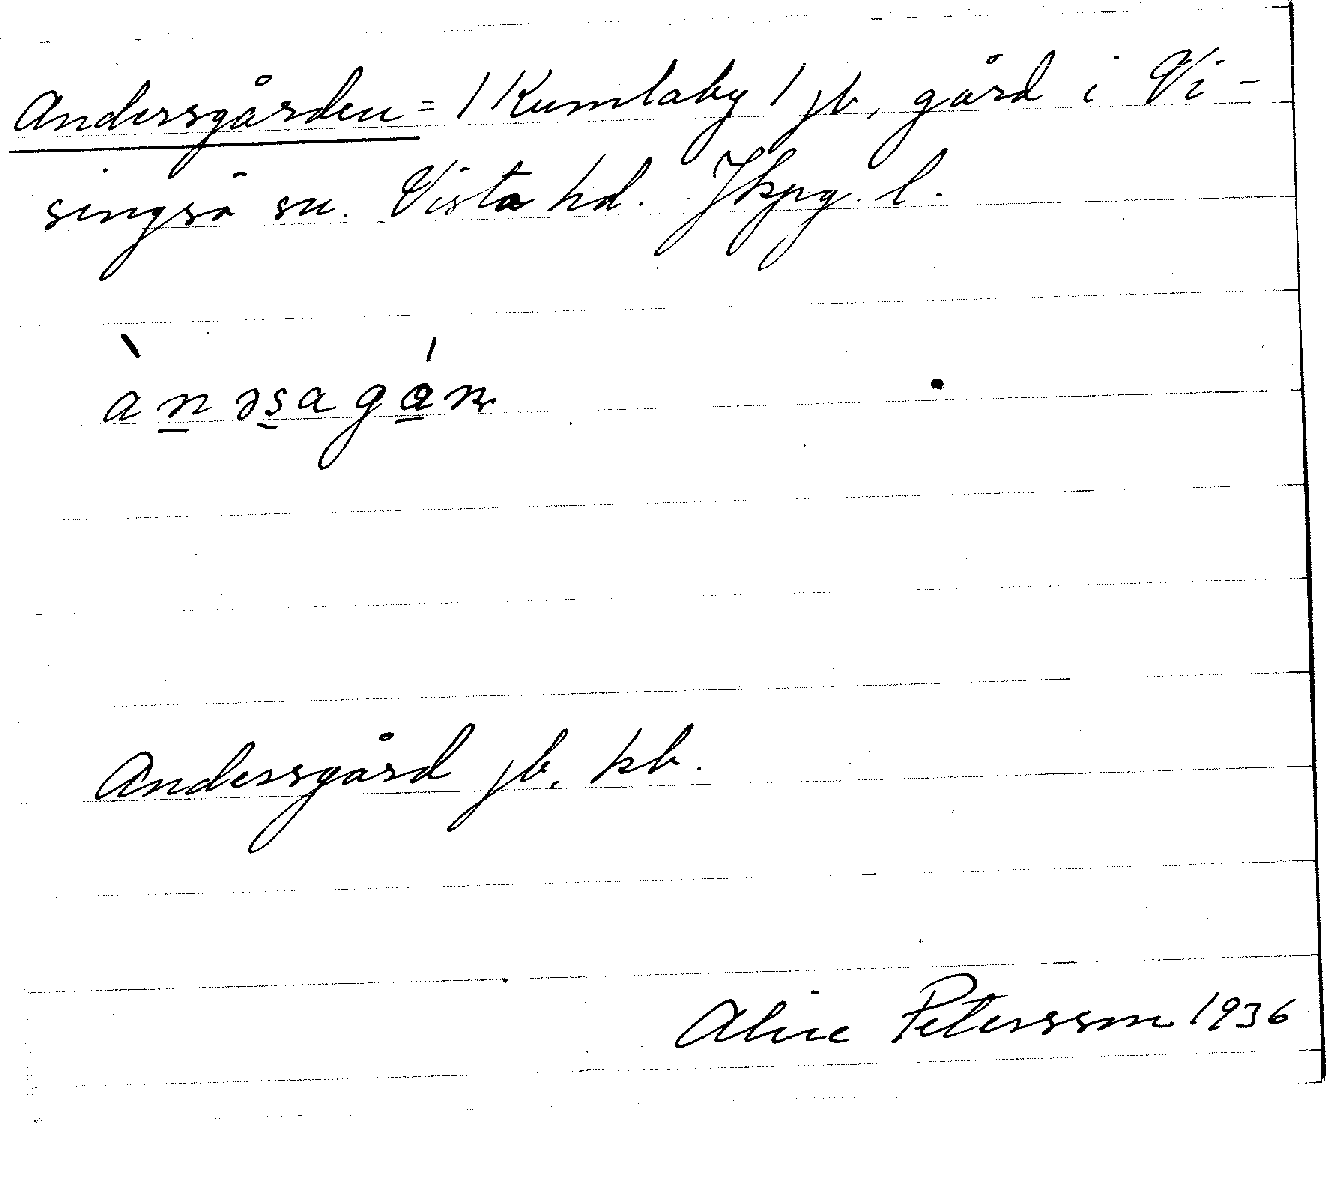 Andersgården = / Kumlaby / jb, gård i Vi-
singsö sn. Vista hd. Jkpg. l.
ànəsagán
Andersgård jb, kb.
Alice Petersson 1936